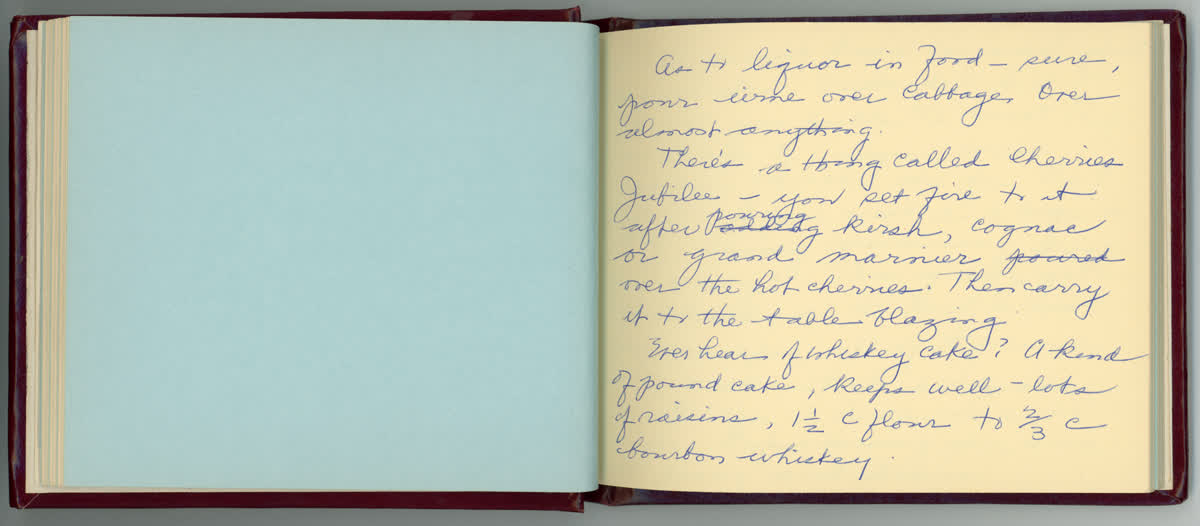 As to liquor in food – sure,
pour wine over cabbage. Over
almost anything.
There's a thing called Cherries
Jubilee – you set fire to it
after pouring kirsh, cognac
or grand marnier poured
over the hot cherries. Then carry
it to the table blazing.
Ever hear of whiskey cake? A kind
of pound cake, keeps well – lots
of raisins, 1 1/2 c flour to 2/3 c
bourbon whiskey.